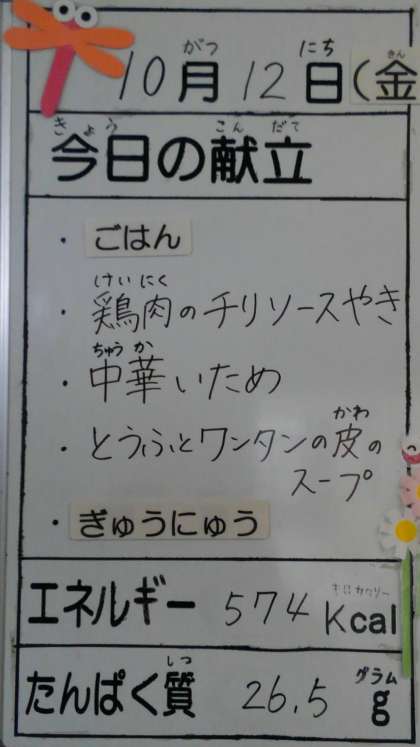 10月12日(金
今日の献立
・ごはん
・鶏肉のチリソースやき
・中華いため
・とうふとワンタンの皮の
スープ
・ぎゅうにゅう
エネルギー 574 Kcal
たんぱく質 26.5 g